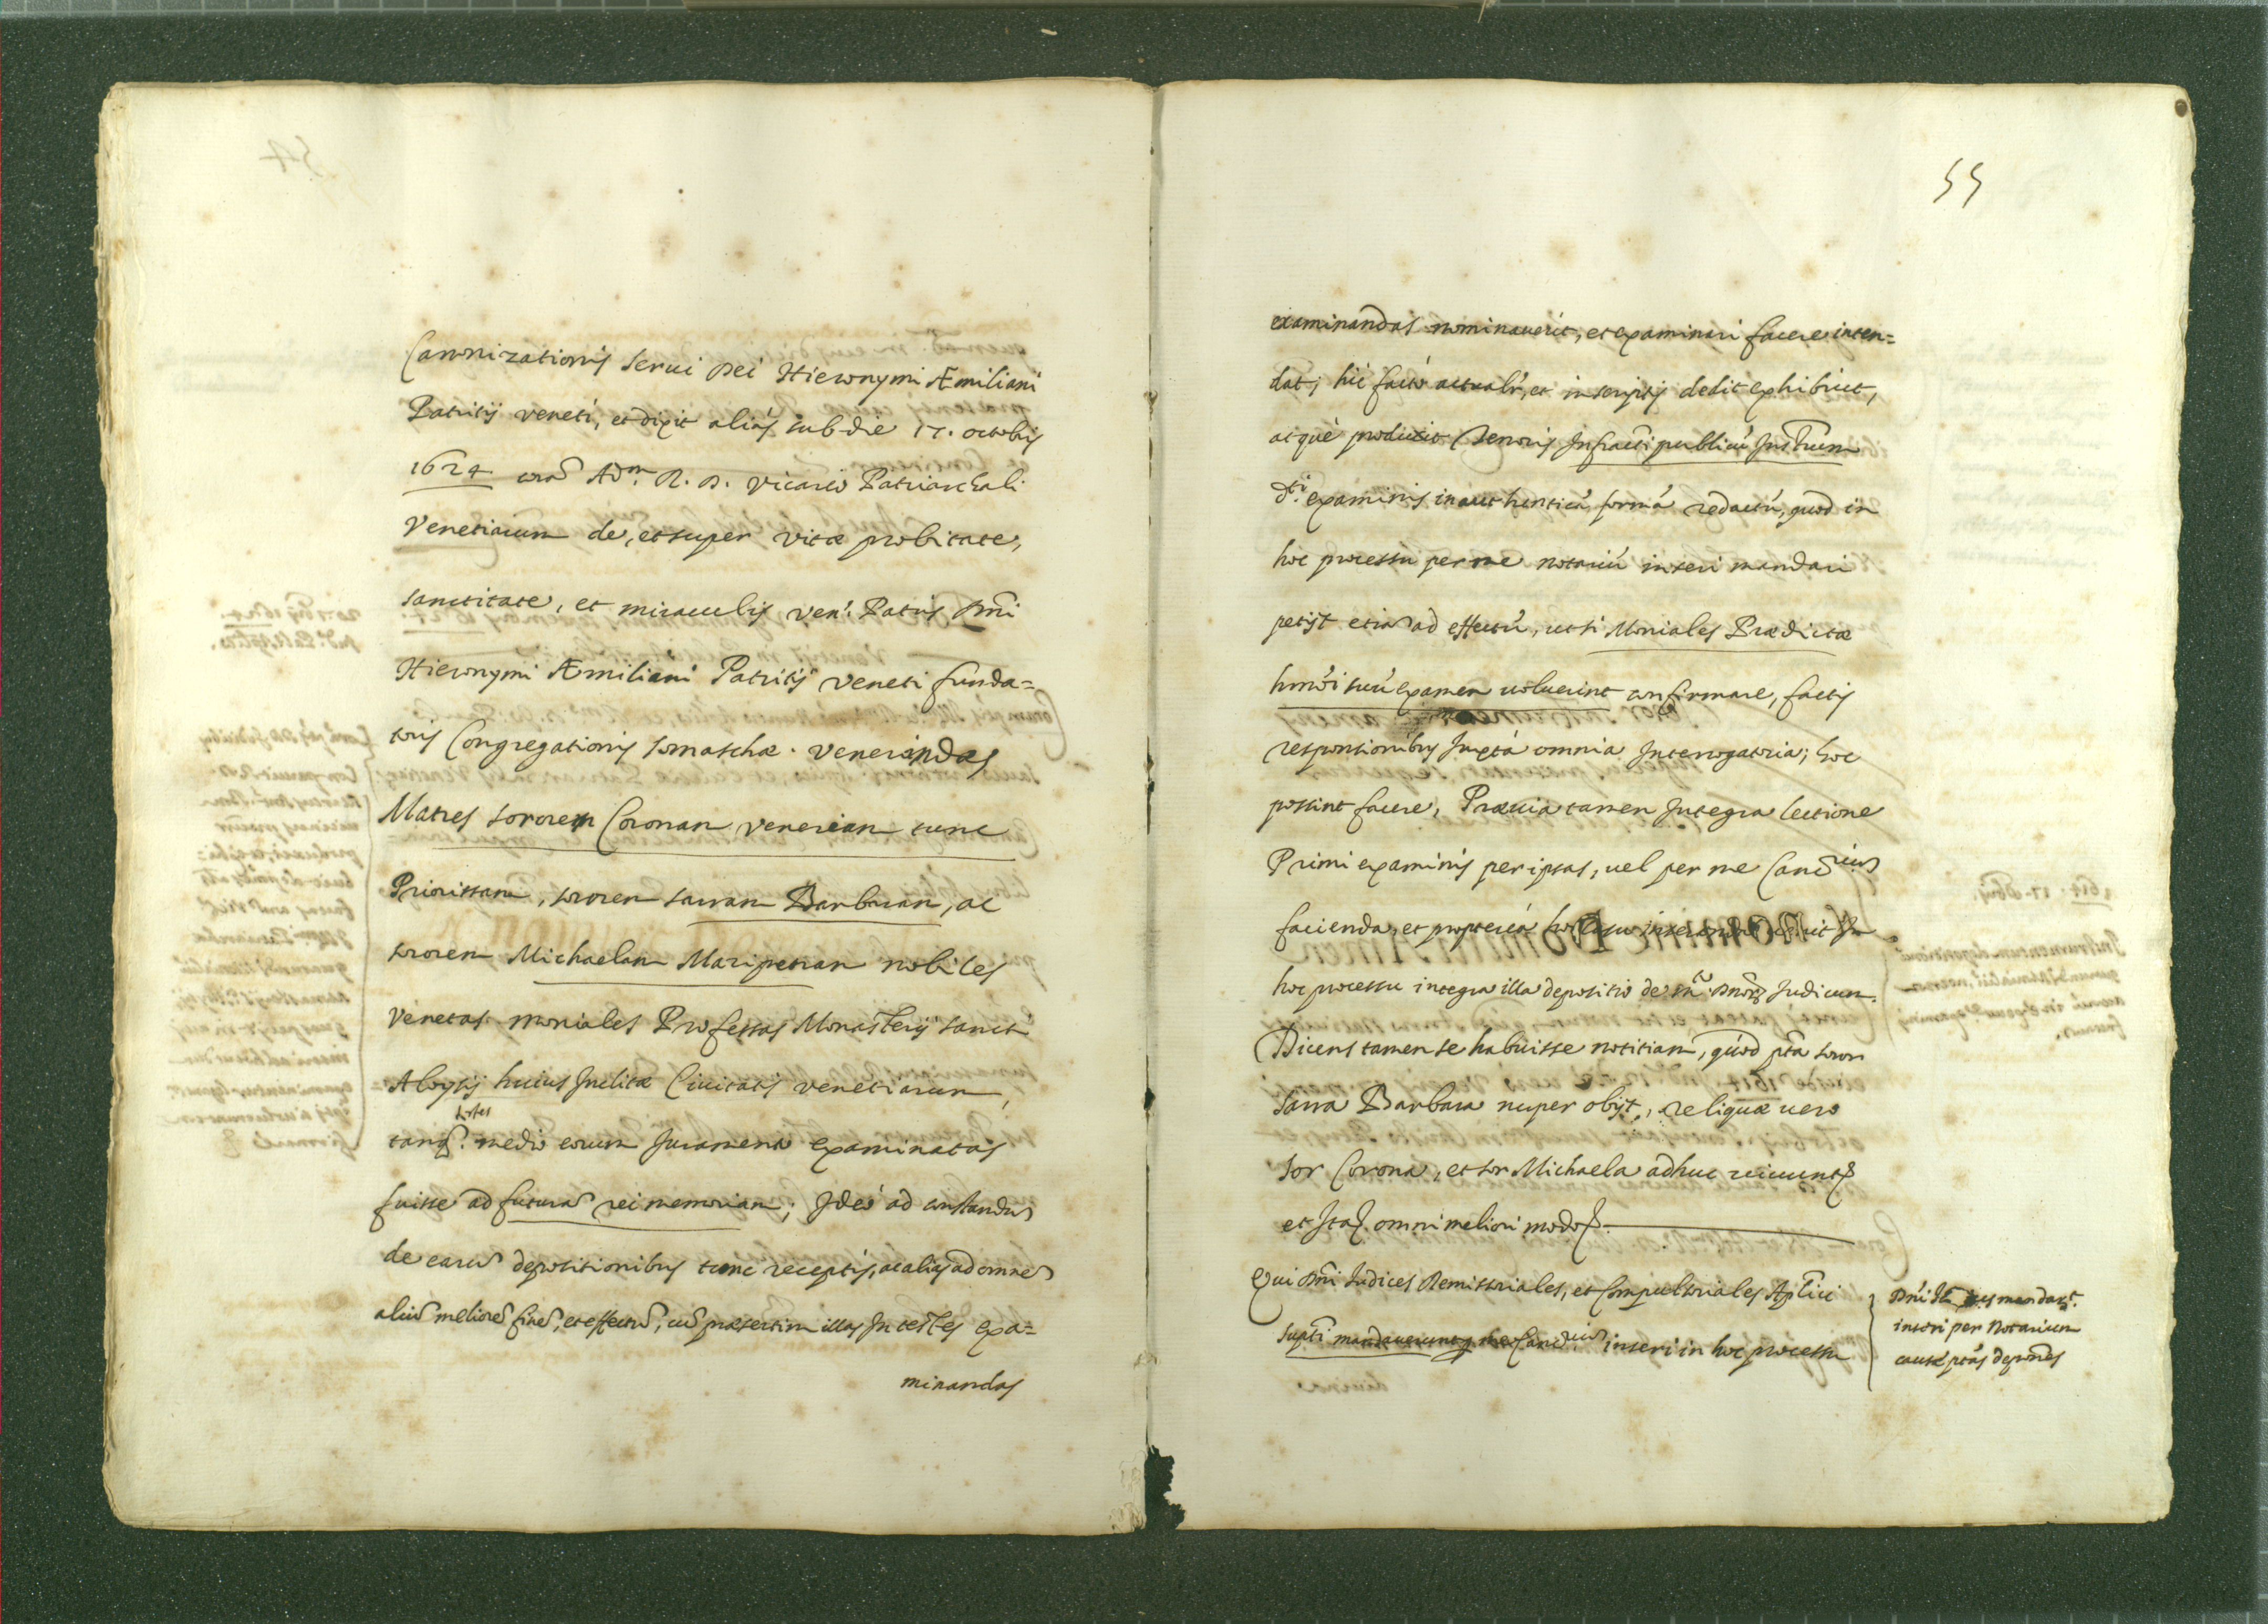 Canonizationis serui Dei Hieronymi Æmiliani
Patritij veneti, et dixit aliàs sub die 17. octobris
1624 corā Adm. R. D. Vicario Patriarchali
Venetiarum de, et super vitæ probitate,
sanctitate, et miraculis ven: Patris Dñi
Hieronymi Æmiliani Patritij Veneti funda=
toris Congregationis somaschæ. venerandas
Matres sororem Coronam Veneriam tunc
Priorissam, sororem sarram Barbaram, ac
sororem Michaelam Maripetram nobiles
Venetas moniales Professas Monasterij sancti
Aloysij huius Inclitæ Ciuitatis venetiarum,
tanq. testes medio eorum Juramento examinatas
fuisse ad futurā rei memoriam; Ideò ad constandū
de earū depositionibus tunc receptis, ac alias ad omnē
aliū meliorē finē, et effectū, cū præsertim illas In testes exa=
minandas
55
examinandas nominauerit, et examinari facere inten=
dat; hic facto actualr, et in scriptis dedit exhibuit,
atquè produxit tenoris Infracti publicū Instrūm
dti examinis in authenticā formā redactū, quod in
hoc processu per me notariū inseri mandari
petijt etiā ad effectū, ut si Moniales Prædictæ
hmòi suū examen uoluerint confirmare, factis
responsionibus Juxtà omnia Interrogatoria; hoc
possint facere, Præuia tamen Integra lectione
Primi examinis per ipsas, uel per me Canc̄rium
facienda, et proptereà hoc In
hoc processu integra illa depositio de mto Dnor̄ Judicum.
Dicens tamen se habuisse notitiam, quòd pta soror
Sarra Barbara nuper obijt, reliquæ uero
sor Corona, et sor Michaela adhuc uiuunt
et Ita omni meliori modo
Qui Dñi Iudices Remissoriales, et Compulsoriales Aplici
supti mandauerunt p me Canc̄rium inseri in hoc processu
Dñi mandar̄t.
inseri per Notarium
causæ ptas depōnes